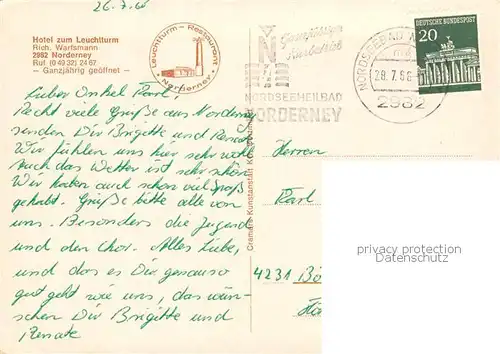 26.7.68
Hotel zum Leuchtturm
Rich. Warfsmann
2982 Norderney
Ruf (0 49 32) 24 67
– Ganzjährig geöffnet –
Leuchtturm - Restaurant
Norderney
Ganzjähriger
Kurbetrieb
NORDSEEHEILBAD
NORDERNEY
NORDSEEBAD
28.7.68
2982
DEUTSCHE BUNDESPOST
20
Lieber Onkel Karl,
Recht viele Grüße aus Norderney
senden Dir Brigitte und Renate
Wir fühlen uns hier sehr wohl
Auch das Wetter ist sehr schön
Wir haben auch schon viel Spaß
gehabt. Grüße bitte alle von
uns. Besonders die Jugend
und den Chor. Alles Liebe,
und das es Dir genauso
gut geht wie uns, das wün-
schen Dir Brigitte und
Renate
Cramers Kunstanstalt
Herren
Karl
4231 Bö
privacy protection
Datenschutz